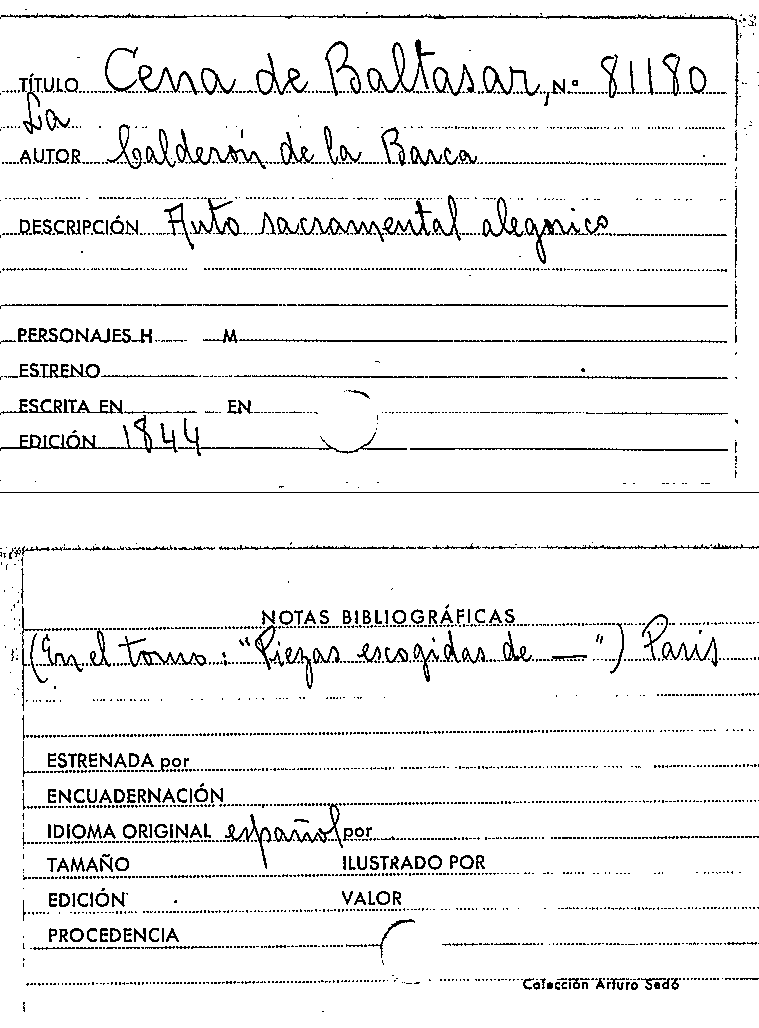 TÍTULO Cena de Baltasar, Nº 81180
La
AUTOR Calderón de la Barca
DESCRIPCIÓN Auto sacramental alegorico
PERSONAJES H M
ESTRENO
ESCRITA EN EN
EDICIÓN 1844
NOTAS BIBLIOGRÁFICAS
(En el tomo: "Piezas escogidas de —") Paris
ESTRENADA por
ENCUADERNACIÓN
IDIOMA ORIGINAL español por
TAMAÑO ILUSTRADO POR
EDICIÓN VALOR
PROCEDENCIA
Colección Arturo Sedó